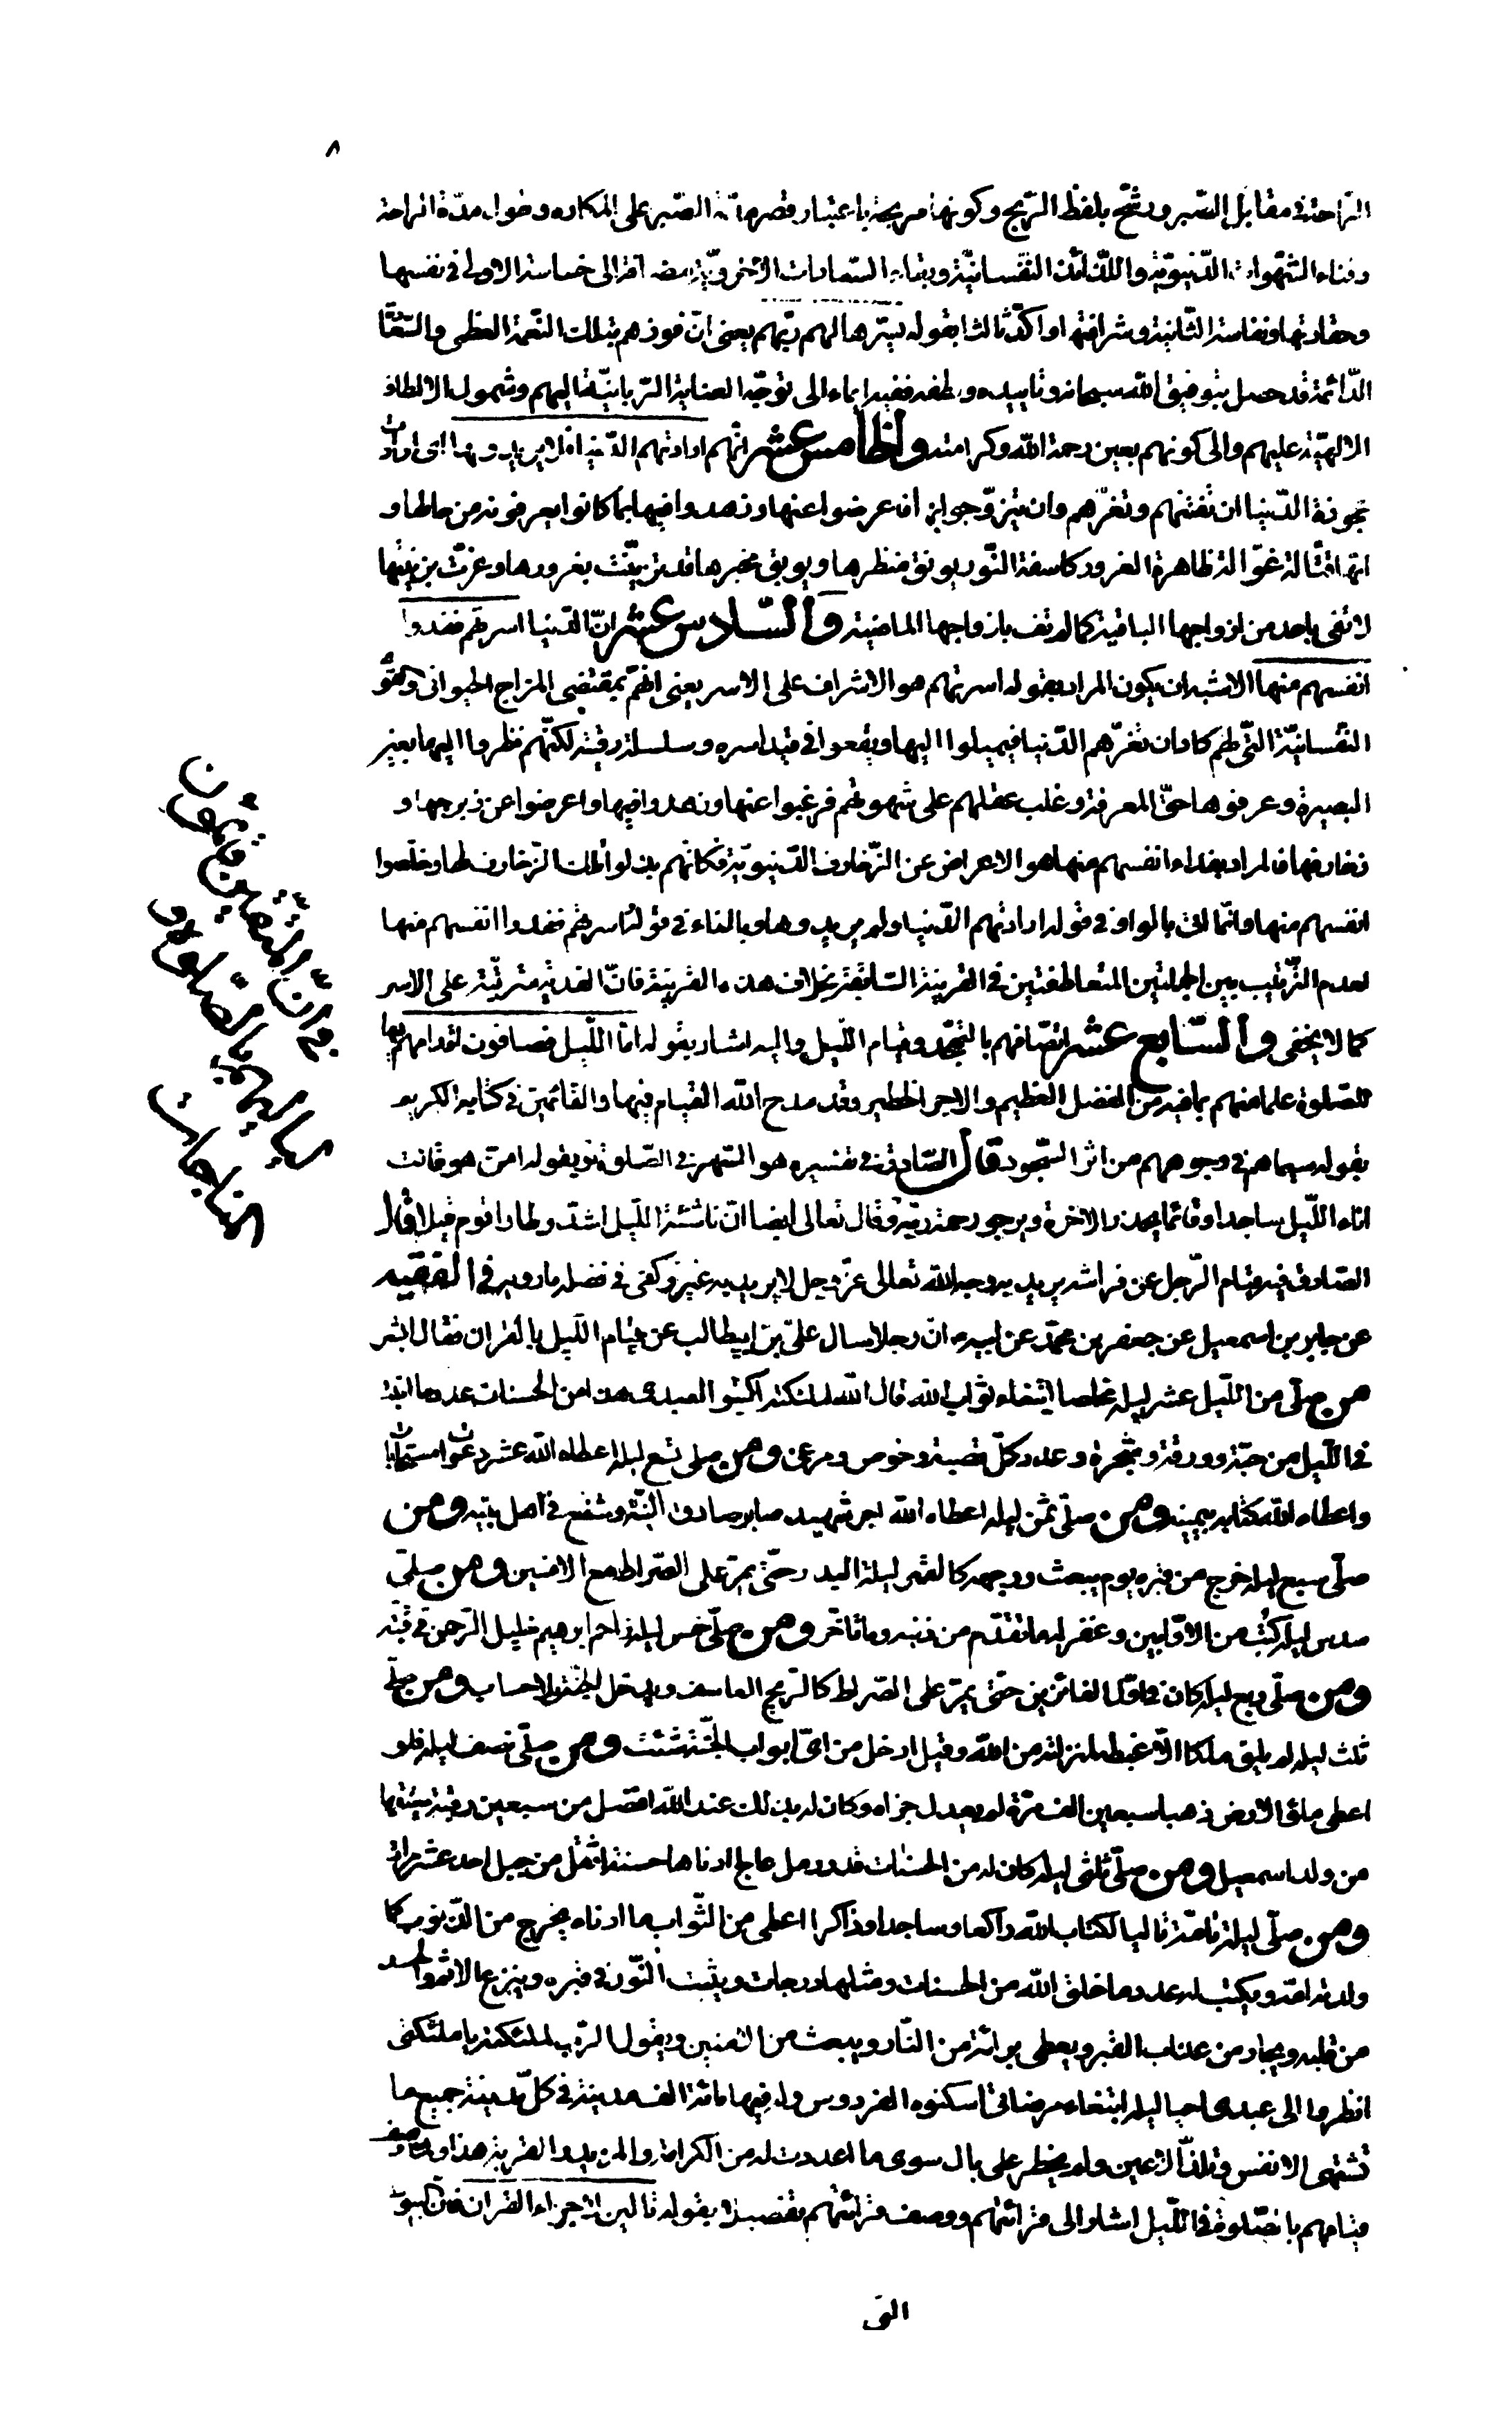 ٨
الرّاحة في مقابل الصّبر ورشّح بلفظ الرّبح وكونها مربحة باعتبار قصر مدّة الصّبر على المكاره وطول مدّة الراحة
وفناء الشّهوات الدّنيويّة واللّذائذ النّفسانيّة وبقاء السّعادات الأخرويّة مضافة الى خساسة الاولى في نفسها
وحقارتها ونفاسة الثّانية وشرافتها واكّد ثالثا بقوله يسّرها لهم ربّهم يعنى انّ فوزهم بتلك النّعمة العظمى والسّعادة
الدّائمة قد حصل بتوفيق اللّه سبحانه وتاييده ولطفه ففيه ايماء الى توجّه العناية الرّبانيّة اليهم وشمول الالطاف
الالهيّة عليهم والى كونهم بعين رحمة اللّه وكرامته والخامس عشر انّهم ارادتهم الدّنيا فلم يريدوها اى ارادت
عجوزة الدّنيا ان تفتنهم وتغرّهم وان يتزوّجوا بها فاعرضوا عنها وزهدوا فيها بما كانوا يعرفونه من حالها و
انها قتّالة غوّالة ظاهرة الغرور كاسفة النّور يونق منظرها ويوبق مخبرها قد تزيّنت بغرورها وغرّت بزينتها
لا تفى باحد من ازواجها الباقية كما لم تف بازواجها الماضية والسّادس عشر انّ الدّنيا اسرتهم ففدوا
انفسهم منها الاشبه ان يكون المراد بقوله اسرتهم هو الاشراف على الاسر يعنى انّهم بمقتضى المزاج الحيوانى والقوى
النّفسانيّة الّتى لهم كاد ان تغرّهم الدّنيا فيميلوا اليها ويقعوا في قيد اسره وسلسلة رقيّته لكنّهم نظروا اليها بعين
البصيرة وعرفوها حقّ المعرفة وغلب عقلهم على شهوتهم فرغبوا عنها وزهدوا فيها واعرضوا عن زبرجها و
زخارفها فالمراد بفداء انفسهم منها هو الاعراض عن الزّخارف الدّنيويّة فكانّهم بذلوا تلك الزّخارف لها وخلّصوا
انفسهم منها وانّما اتى بالواو في قوله ارادتهم الدّنيا ولم يريدوها وبالفاء في قوله اسرتهم ففدوا انفسهم منها
لعدم التّرتيب بين الجملتين المتعاطفتين في القرينة السّابقة بخلاف هذه القرينة فانّ الفدية مترتّبة على الاسر
كما لا يخفى والسّابع عشر اتّصافهم بالتّهجّد وقيام اللّيل واليه اشار بقوله امّا اللّيل فصافون اقدامهم فيها
للصّلوة علما منهم بما فيه من الفضل العظيم والاجر الخطير وقد مدح اللّه القيام فيها والقائمين في كتابه الكريم
بقوله سيماهم في وجوههم من اثر السّجود قال الصّادق في تفسيره هو السّهر في الصّلوة وبقوله امن هو قانت
اناء اللّيل ساجدا وقائما يحذر الاخرة ويرجو رحمة ربّه وقال تعالى ايضا انّ ناشئة اللّيل اشدّ وطا واقوم قيلا قال
الصّادق فيه قيام الرّجل عن فراشه يريد به وجه اللّه تعالى عزّ وجل لا يريد به غيره وكفى في فضله ما روى في الفقيه
عن جابر بن اسمعيل عن جعفر بن محمّد عن ابيه انّ رجلا سال علىّ بن ابيطالب عن قيام اللّيل بالقران فقال ابشر
من صلّى من اللّيل عشر ليلة مخلصا ابتغاء ثواب اللّه قال اللّه لملئكته اكتبوا لعبدى هذا من الحسنات عدد ما انبت
في اللّيل من حبّة وورقة وشجرة وعدد كلّ قصبة وخوص ومرعى ومن صلى تسع ليلة اعطاه اللّه عشر دعوات مستجابات
واعطاه اللّه كتابه بيمينه ومن صلّى ثمن ليلة اعطاه اللّه اجر شهيد صابر صادق النيّة وشفّع في اهل بيته ومن
صلّى سبع ليلة خرج من قبره يوم يبعث ووجهه كالقمر ليلة البدر حتّى يمرّ على الصّراط مع الامنين ومن صلّى
سدس ليلة كتب من الاوّابين وغفر له ما تقدّم من ذنبه وما تاخّر ومن صلّى خمس ليلة زاحم ابرهيم خليل الرّحمن في قبّته
ومن صلّى ربع ليلة كان في اوّل الفائزين حتى يمرّ على الصّراط كالرّيح العاصف ويدخل الجنّة بلا حساب ومن صلّى
ثلث ليلة لم يلق ملكا الاّ غبطه بمنزلته من اللّه وقيل ادخل من اىّ ابواب الجنّة شئت ومن صلّى نصف ليلة فلو
اعطى ملؤ الارض ذهبا سبعين الف مرّة لم يعدل جزاه وكان له بذلك عند اللّه افضل من سبعين رقبة يعتقها
من ولد اسمعيل ومن صلّى ثلثى ليلة كان له من الحسنات قدر رمل عالج ادناها حسنة اثقل من جبل احد عشر مرّات
ومن صلّى ليلة تامّة تاليا لكتاب اللّه راكعا وساجدا وذاكرا اعطى من الثّواب ما ادناه يخرج من الذّنوب كما
ولدته امّه ويكتب له عدد ما خلق اللّه من الحسنات ومثلها درجات ويثبت النّور في قبره وينزع الاثم والحسد
من قلبه ويجار من عذاب القبر ويعطى برائة من النّار ويبعث من الامنين ويقول الرّب لملئكته يا ملئكتى
انظروا الى عبدى احيا ليلة ابتغاء مرضاتى اسكنوه الفردوس وله فيها مائة الف مدينة في كلّ مدينة جميع ما
تشتهى الانفس وتلذّ الاعين ولم يخطر على بال سوى ما اعددت له من الكرامة والمزيد والقربة هذا ولما وصف
قيامهم بالصّلوة في اللّيل اشار الى قرائتهم ووصف قرائتهم تفصيلا بقوله تالين لاجزاء القران فانّ البيوت
الّتى